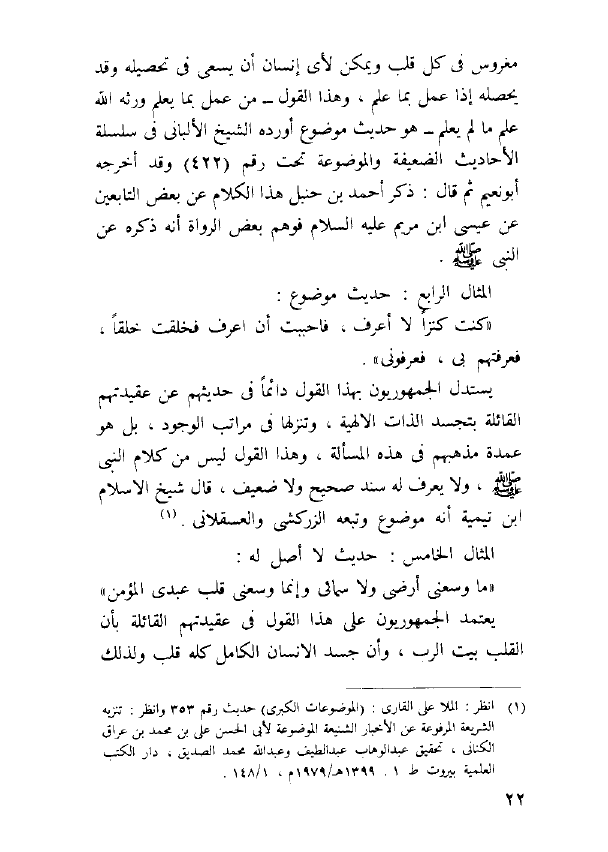 مغروس فى كل قلب ويمكن لأى إنسان أن يسعى فى تحصيله وقد
يحصله إذا عمل بما علم ، وهذا القول ــ من عمل بما يعلم ورثه الله
علم ما لم يعلم ــ هو حديث موضوع أورده الشيخ الألبانى فى سلسلة
الأحاديث الضعيفة والموضوعة تحت رقم (٤٢٢) وقد أخرجه
أبونعيم ثم قال : ذكر أحمد بن حنبل هذا الكلام عن بعض التابعين
عن عيسى ابن مريم عليه السلام فوهم بعض الرواة أنه ذكره عن
النبى ﷺ .
المثال الرابع : حديث موضوع :
«كنت كنزاً لا أعرف ، فاحببت أن اعرف فخلقت خلقاً ،
فعرفتهم بى ، فعرفونى» .
يستدل الجمهوريون بهذا القول دائماً فى حديثهم عن عقيدتهم
القائلة بتجسد الذات الالهية ، وتنزلها فى مراتب الوجود ، بل هو
عمدة مذهبهم فى هذه المسألة ، وهذا القول ليس من كلام النبى
ﷺ ، ولا يعرف له سند صحيح ولا ضعيف ، قال شيخ الاسلام
ابن تيمية أنه موضوع وتبعه الزركشى والعسقلانى . (١)
المثال الخامس : حديث لا أصل له :
«ما وسعنى أرضى ولا سمائى وإنما وسعنى قلب عبدى المؤمن»
يعتمد الجمهوريون على هذا القول فى عقيدتهم القائلة بأن
القلب بيت الرب ، وأن جسد الانسان الكامل كله قلب ولذلك
(١) انظر : الملا على القارى : (الموضوعات الكبرى) حديث رقم ٣٥٣ وانظر : تنزيه
الشريعة المرفوعة عن الأخبار الشنيعة الموضوعة لأبى الحسن على بن محمد بن عراق
الكنانى ، تحقيق عبدالوهاب عبدالطيف وعبدالله محمد الصديق ، دار الكتب
العلمية بيروت ط ١ . ١٣٩٩هـ/١٩٧٩م ، ١٤٨/١ .
٢٢